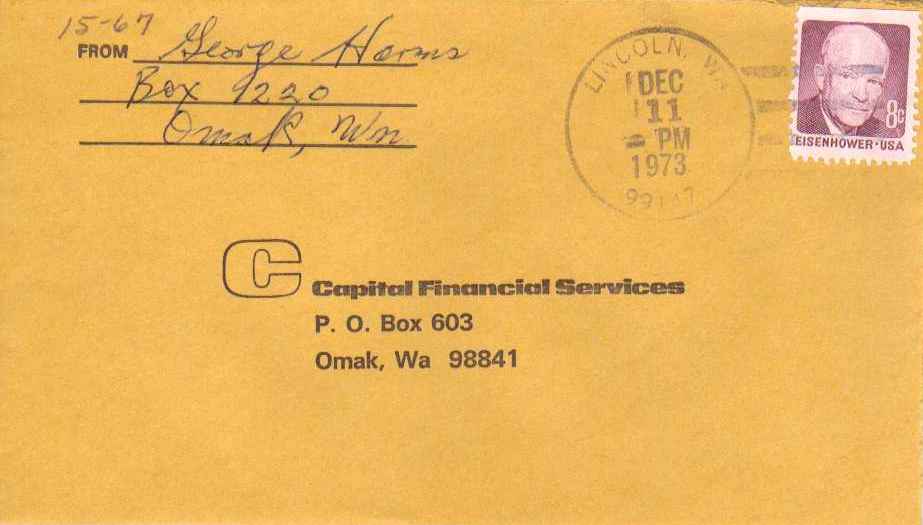 15-67
FROM George Harms
Box 1220
Omak, Wn.
LINCOLN, WA
DEC
11
PM
1973
99147
8c
EISENHOWER·USA
C Capital Financial Services
P. O. Box 603
Omak, Wa 98841